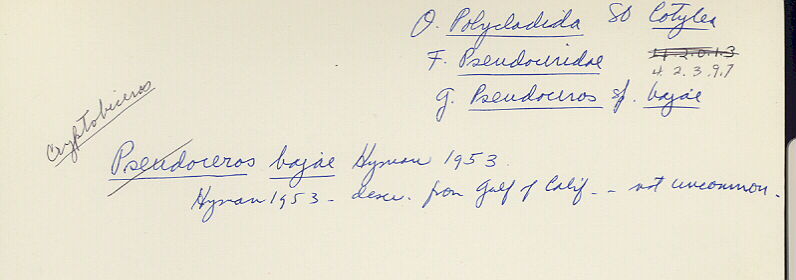 O. Polycladida SO Cotylea
F. Pseudoceridae 4.2.0.1.3
4.2.3.9.7
G. Pseudoceros sp. bajae
Cryptobiceros
Pseudoceros bajae Hyman 1953.
Hyman 1953 - descr. from Gulf of Calif. - not uncommon.